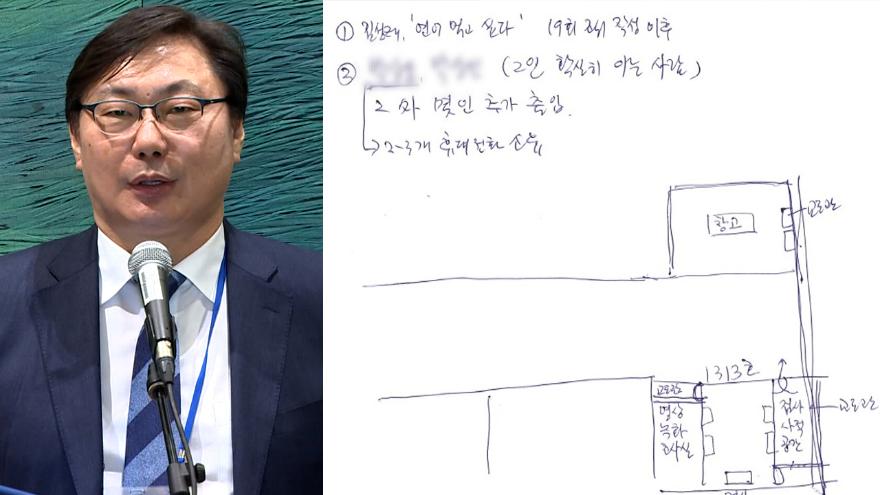 ① 김성태, '연어 먹고 싶다' 19회 조서 작성 이후
② (2인 확실히 아는 사람)
2 와 몇인 추가 출입.
→ 2-3개 휴대전화 소유
창고
교도관
1313호
교도관
영상
녹화
조사실
검사
사적
공간
교도관